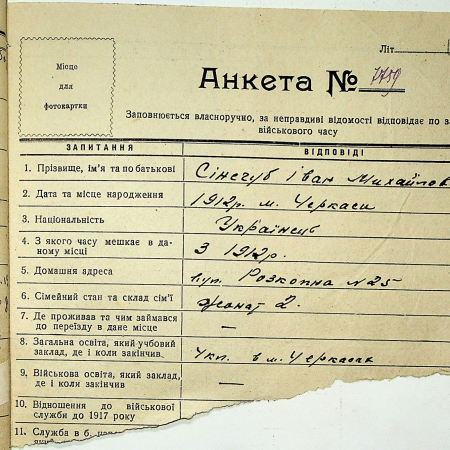 Літ
Місце
для
фотокартки
Анкета № 7759
Заповнюється власноручно, за неправдиві відомості відповідає по за
військового часу
ЗАПИТАННЯ ВІДПОВІДІ
1. Прізвище, ім'я та по батькові Сінєгуб Іван Михайлов
2. Дата та місце народження 1912 р. м. Черкаси
3. Національність Українець
4. З якого часу мешкає в да-
ному місці З 1912 р.
5. Домашня адреса вул. Розкопна N 25
6. Сімейний стан та склад сім'ї Жонат 2.
7. Де проживав та чим займався
до переїзду в дане місце —
8. Загальна освіта, який учбовий
заклад, де і коли закінчив. 4 кл. в м. Черкасах
9. Військова освіта, який заклад,
де і коли закінчив —
10. Відношення до військової
служби до 1917 року
11. Служба в б.